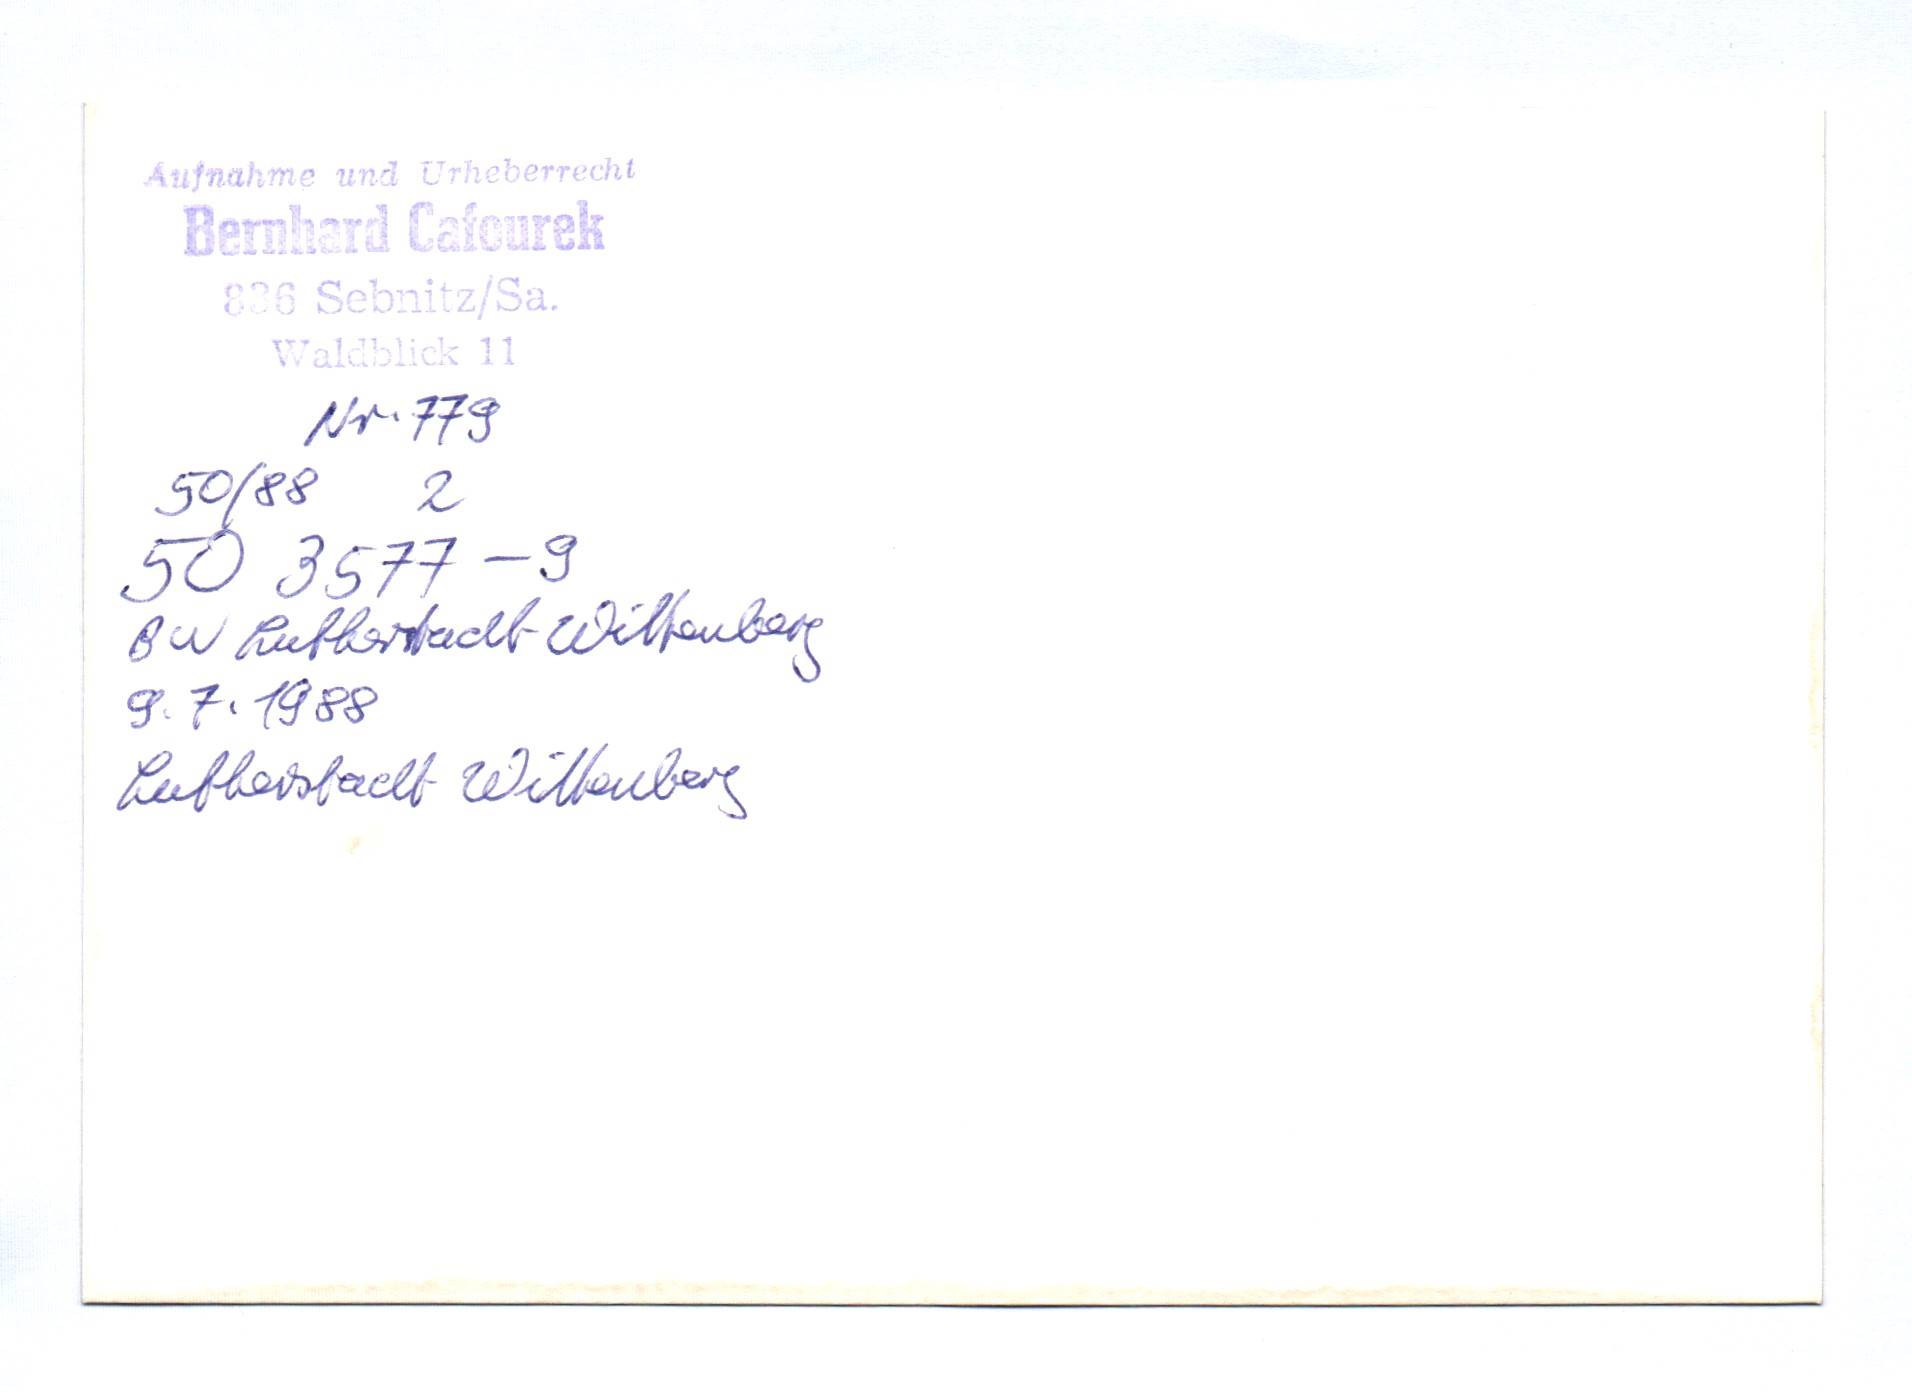 Aufnahme und Urheberrecht
Bernhard Cafourek
836 Sebnitz/Sa.
Waldblick 11
Nr. 779
50/88 2
50 3577-9
BW Lutherstadt Wittenberg
9.7.1988
Lutherstadt Wittenberg